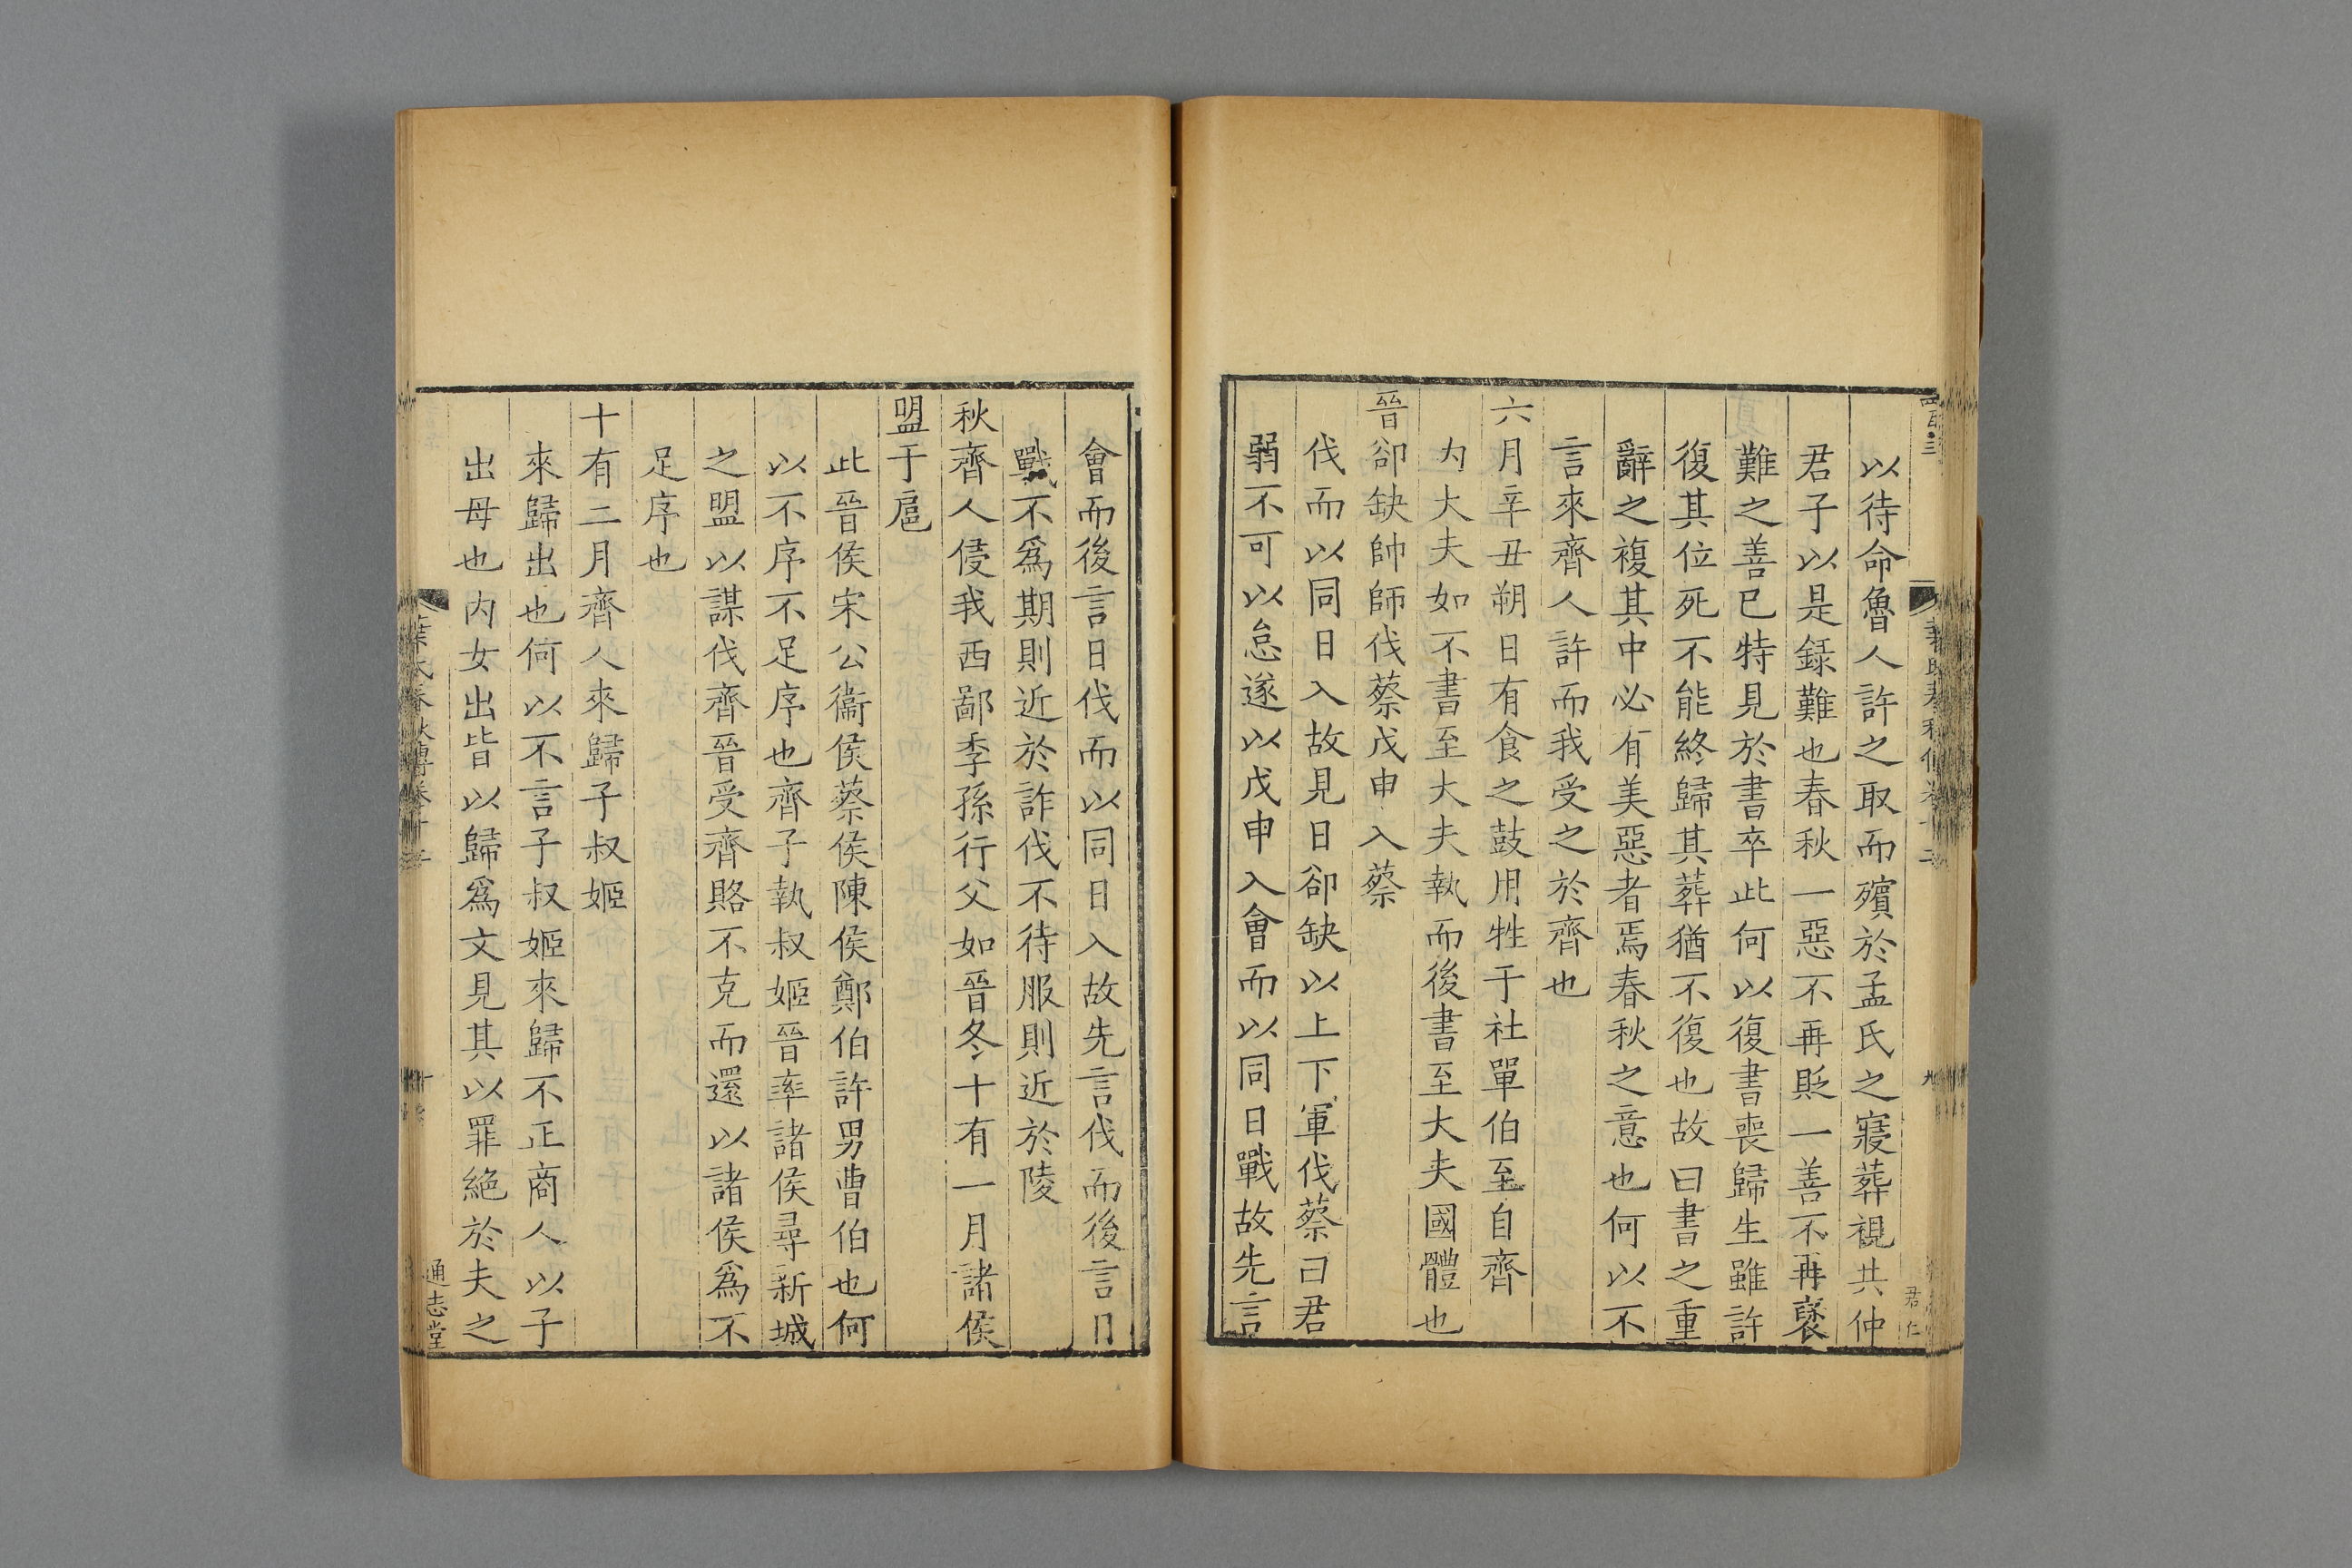 以待命魯人許之取而殯於孟氏之寢葬視共仲
君子以是録難也春秋一惡不再貶一善不再襃
難之善已特見於書卒此何以復書喪歸生雖許
復其位死不能終歸其葬猶不復也故曰書之重
辭之複其中必有美惡者焉春秋之意也何以不
言來齊人許而我受之於齊也
六月辛丑朔日有食之鼓用牲于社單伯至自齊
内大夫如不書至大夫執而後書至大夫國體也
晉郤缺帥師伐蔡戊申入蔡
伐而以同日入故見日郤缺以上下軍伐蔡曰君
弱不可以怠遂以戊申入會而以同日戰故先言
會而後言日伐而以同日入故先言伐而後言日
戰不爲期則近於詐伐不待服則近於陵
秋齊人侵我西鄙季孫行父如晉冬十有一月諸侯
盟于扈
此晉侯宋公衞侯蔡侯陳侯鄭伯許男曹伯也何
以不序不足序也齊子執叔姬晉率諸侯尋新城
之盟以謀伐齊晉受齊賂不克而還以諸侯爲不
足序也
十有二月齊人來歸子叔姬
來歸出也何以不言子叔姬來歸不正商人以子
出母也内女出皆以歸爲文見其以罪絶於夫之
葉氏春秋傳卷十二
十
通志堂
九
君仁